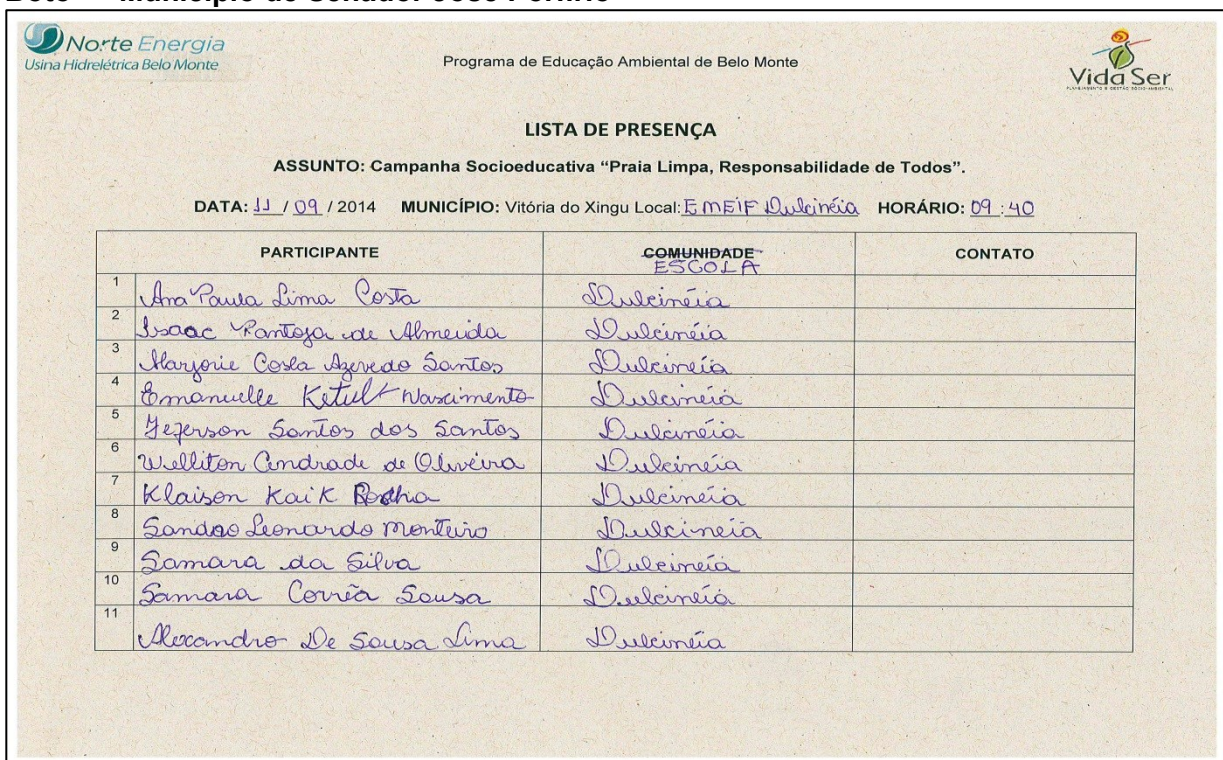 Norte Energia
Usina Hidrelétrica Belo Monte
Programa de Educação Ambiental de Belo Monte
Vida Ser
LISTA DE PRESENÇA
ASSUNTO: Campanha Socioeducativa “Praia Limpa, Responsabilidade de Todos”.
DATA: 11 / 09 / 2014 MUNICÍPIO: Vitória do Xingu Local: EMEIF Dulcinéia HORÁRIO: 09:40
PARTICIPANTE COMUNIDADE CONTATO
ESCOLA
1 Ana Paula Lima Costa Dulcinéia
2 Isaac Pantoja de Almeida Dulcinéia
3 Marjorie Costa Azevedo Santos Dulcinéia
4 Emanuelle Nascimento Dulcineia
5 Jeferson Santos dos Santos Dulcinéia
6 Welliton Andrade de Oliveira Dulcinéia
7 Klaison Kaik Rocha Dulcinéia
8 Leonardo Monteiro Dulcinéia
9 Samara da Silva Dulcinéia
10 Samara Corrêa Sousa Dulcinéia
11 Alexandro De Sousa Lima Dulcinéia